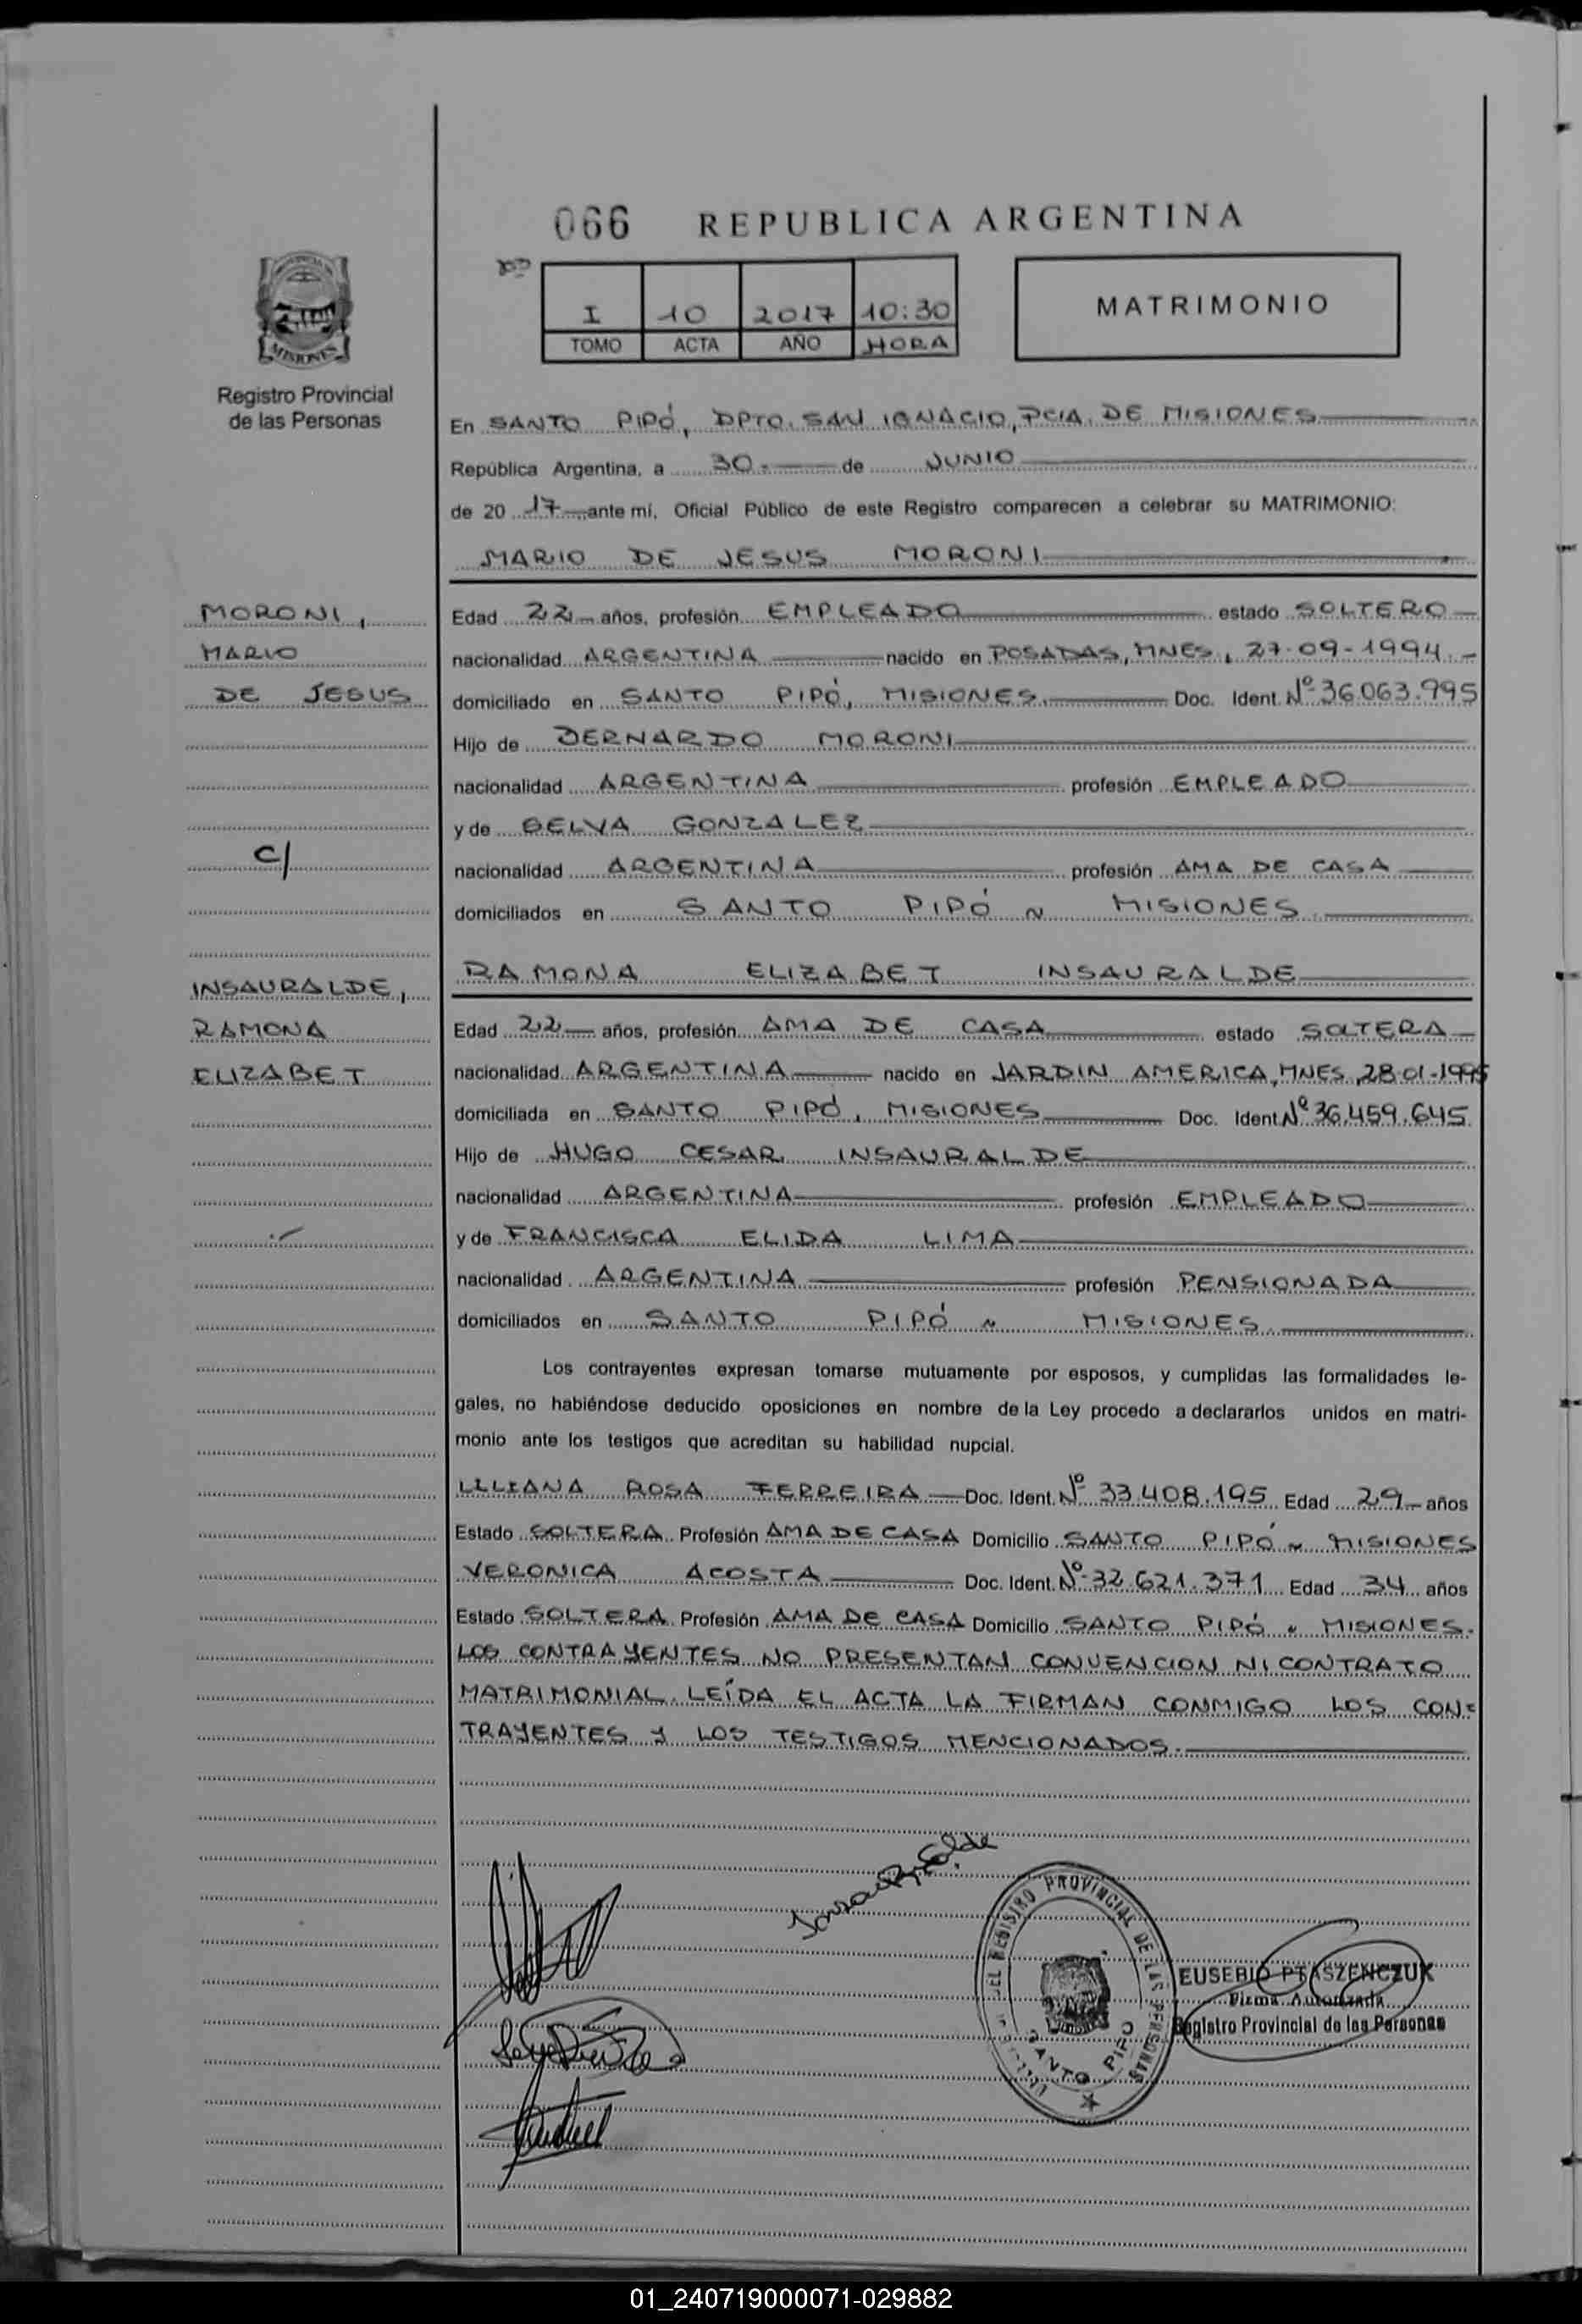 066 REPUBLICA ARGENTINA
I 10 2017 10:30
TOMO ACTA AÑO HORA
MATRIMONIO
MISIONES
Registro Provincial
de las Personas
En SANTO PIPÓ, DPTO. SAN IGNACIO, PCIA. DE MISIONES
República Argentina, a 30.- de JUNIO
de 20 17 ante mí, Oficial Público de este Registro comparecen a celebrar su MATRIMONIO:
MARIO DE JESUS MORONI
MORONI,
MARIO
DE JESUS
C/
INSAURALDE,
RAMONA
ELIZABET
Edad 22 años, profesión EMPLEADO estado SOLTERO
nacionalidad ARGENTINA nacido en POSADAS, MNES, 27-09-1994.-
domiciliado en SANTO PIPÓ, MISIONES. Doc. Ident. Nº 36.063.995
Hijo de BERNARDO MORONI
nacionalidad ARGENTINA profesión EMPLEADO
y de SELVA GONZALEZ
nacionalidad ARGENTINA profesión AMA DE CASA
domiciliados en SANTO PIPÓ ~ MISIONES.
RAMONA ELIZABET INSAURALDE
Edad 22 años, profesión AMA DE CASA estado SOLTERA
nacionalidad ARGENTINA nacido en JARDIN AMERICA, MNES, 28-01-1995
domiciliada en SANTO PIPÓ, MISIONES Doc. Ident. Nº 36.459.645
Hijo de HUGO CESAR INSAURALDE
nacionalidad ARGENTINA profesión EMPLEADO
y de FRANCISCA ELIDA LIMA
nacionalidad ARGENTINA profesión PENSIONADA
domiciliados en SANTO PIPÓ ~ MISIONES.
Los contrayentes expresan tomarse mutuamente por esposos, y cumplidas las formalidades le-
gales, no habiéndose deducido oposiciones en nombre de la Ley procedo a declararlos unidos en matri-
monio ante los testigos que acreditan su habilidad nupcial.
LILIANA ROSA FERREIRA Doc. Ident. Nº 33.408.195 Edad 29 años
Estado SOLTERA Profesión AMA DE CASA Domicilio SANTO PIPÓ ~ MISIONES
VERONICA ACOSTA Doc. Ident. Nº 32.621.371 Edad 34 años
Estado SOLTERA Profesión AMA DE CASA Domicilio SANTO PIPÓ ~ MISIONES.
LOS CONTRAYENTES NO PRESENTAN CONVENCION NI CONTRATO
MATRIMONIAL. LEÍDA EL ACTA LA FIRMAN CONMIGO LOS CON=
TRAYENTES Y LOS TESTIGOS MENCIONADOS.
DEL REGISTRO PROVINCIAL DE LAS PERSONAS
SANTO PIPO
EUSEBIO PTASZENCZUK
Firma Autorizada
Registro Provincial de las Personas
01_240719000071-029882